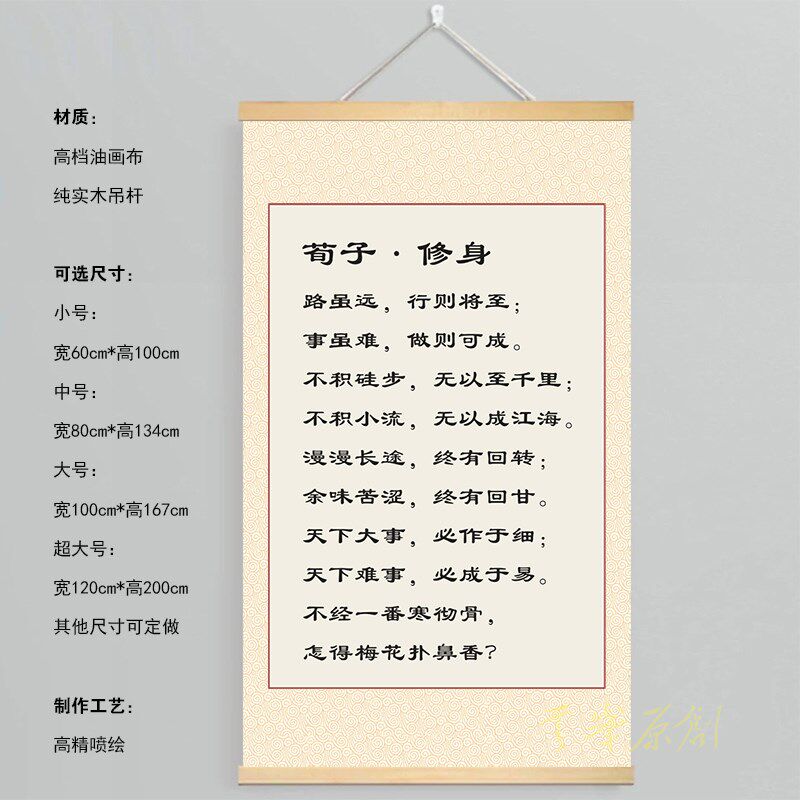 材质：
高档油画布
纯实木吊杆
可选尺寸：
小号：
宽60cm*高100cm
中号：
宽80cm*高134cm
大号：
宽100cm*高167cm
超大号：
宽120cm*高200cm
其他尺寸可定做
制作工艺：
高精喷绘
荀子·修身
路虽远，行则将至；
事虽难，做则可成。
不积硅步，无以至千里；
不积小流，无以成江海。
漫漫长途，终有回转；
余味苦涩，终有回甘。
天下大事，必作于细；
天下难事，必成于易。
不经一番寒彻骨，
怎得梅花扑鼻香？
原創